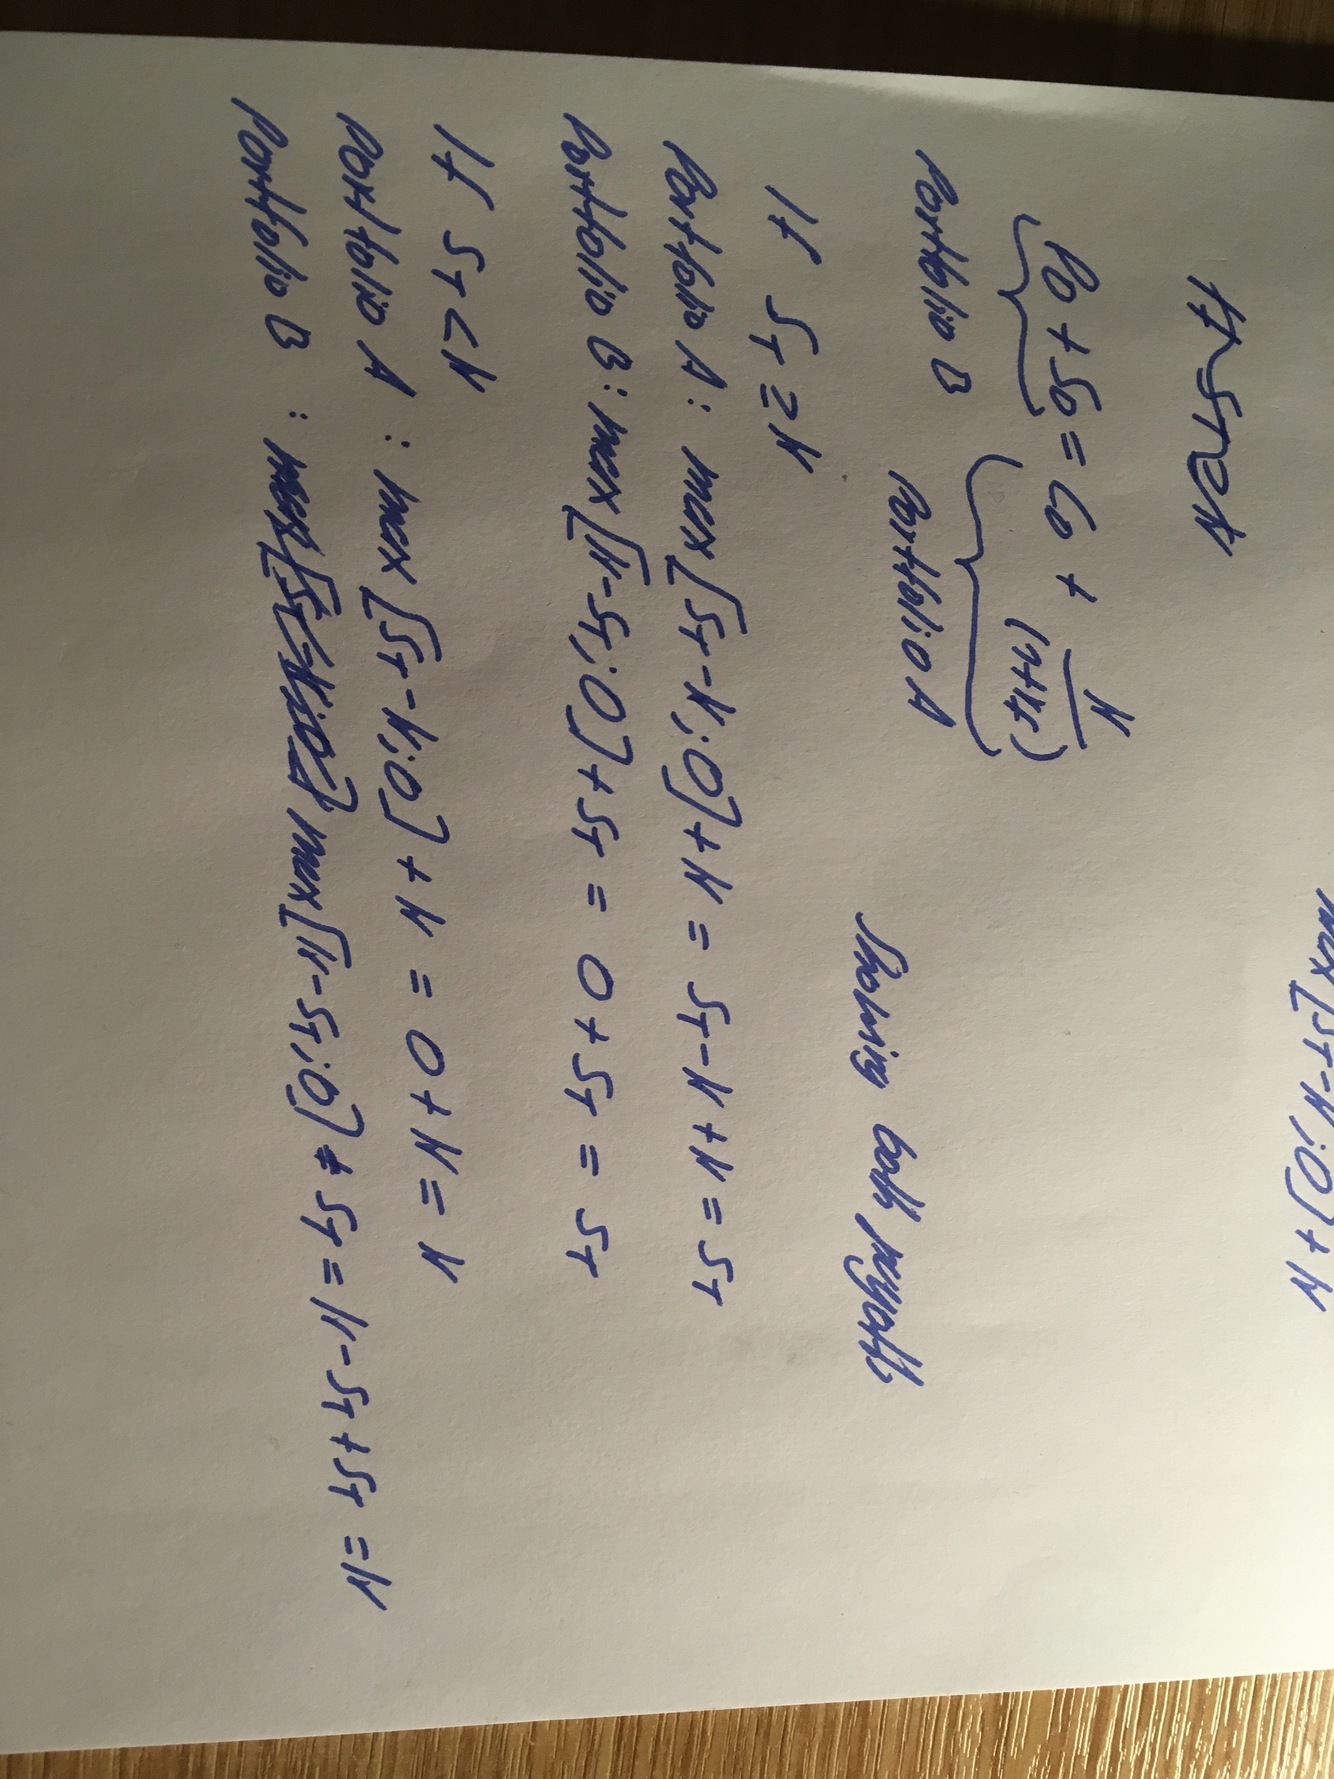 max[ST-K;0]+K
If ST<K
P0 + S0 = C0 + K
(1+rf)
Portfolio B Portfolio A Showing both payoffs
If ST ≥ K
Portfolio A: max[ST-K;0]+K = ST-K+K = ST
Portfolio B: max[K-ST;0]+ST = 0+ST = ST
If ST<K
Portfolio A : max[ST-K;0]+K = 0+K = K
Portfolio B : max[ST-K;0] max[K-ST;0]+ST = K-ST+ST = K